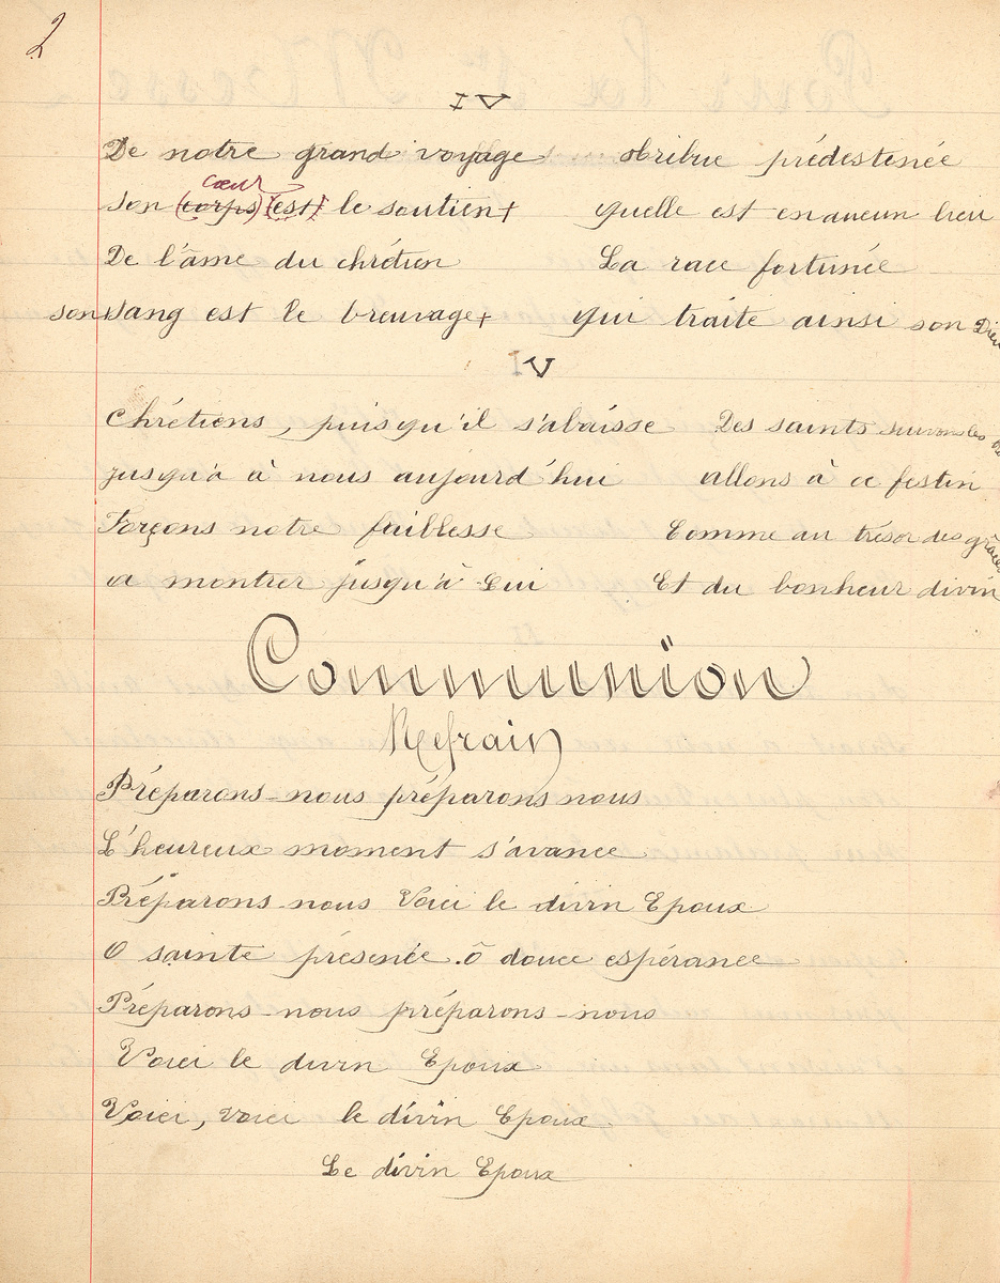 2
IV
De notre grand voyage
cœur
son (corps) (est) le soutien+
De l'âme du chrétien
son sang est le breuvage+
prédestenée
quelle est en aucun lieu
La race fortunée
qui traite ainsi son Dieu
V
Chrétiens, puisqu'il s'abaisse
jusqu'à à nous aujourd'hui
Forçons notre faiblesse
a montrer jusqu'à Lui
Des saints suivons les
allons à ce festin
Comme au trésor des grâces
Et du bonheur divin
Communion
Refrain
Préparons-nous préparons nous
L'heureux moment s'avance
Préparons-nous Voici le divin Epoux
O sainte présence. ô douce espérance
Préparons-nous préparons-nous
Voici le divin Epoux
Voici, voici le divin Epoux
Le divin Epoux